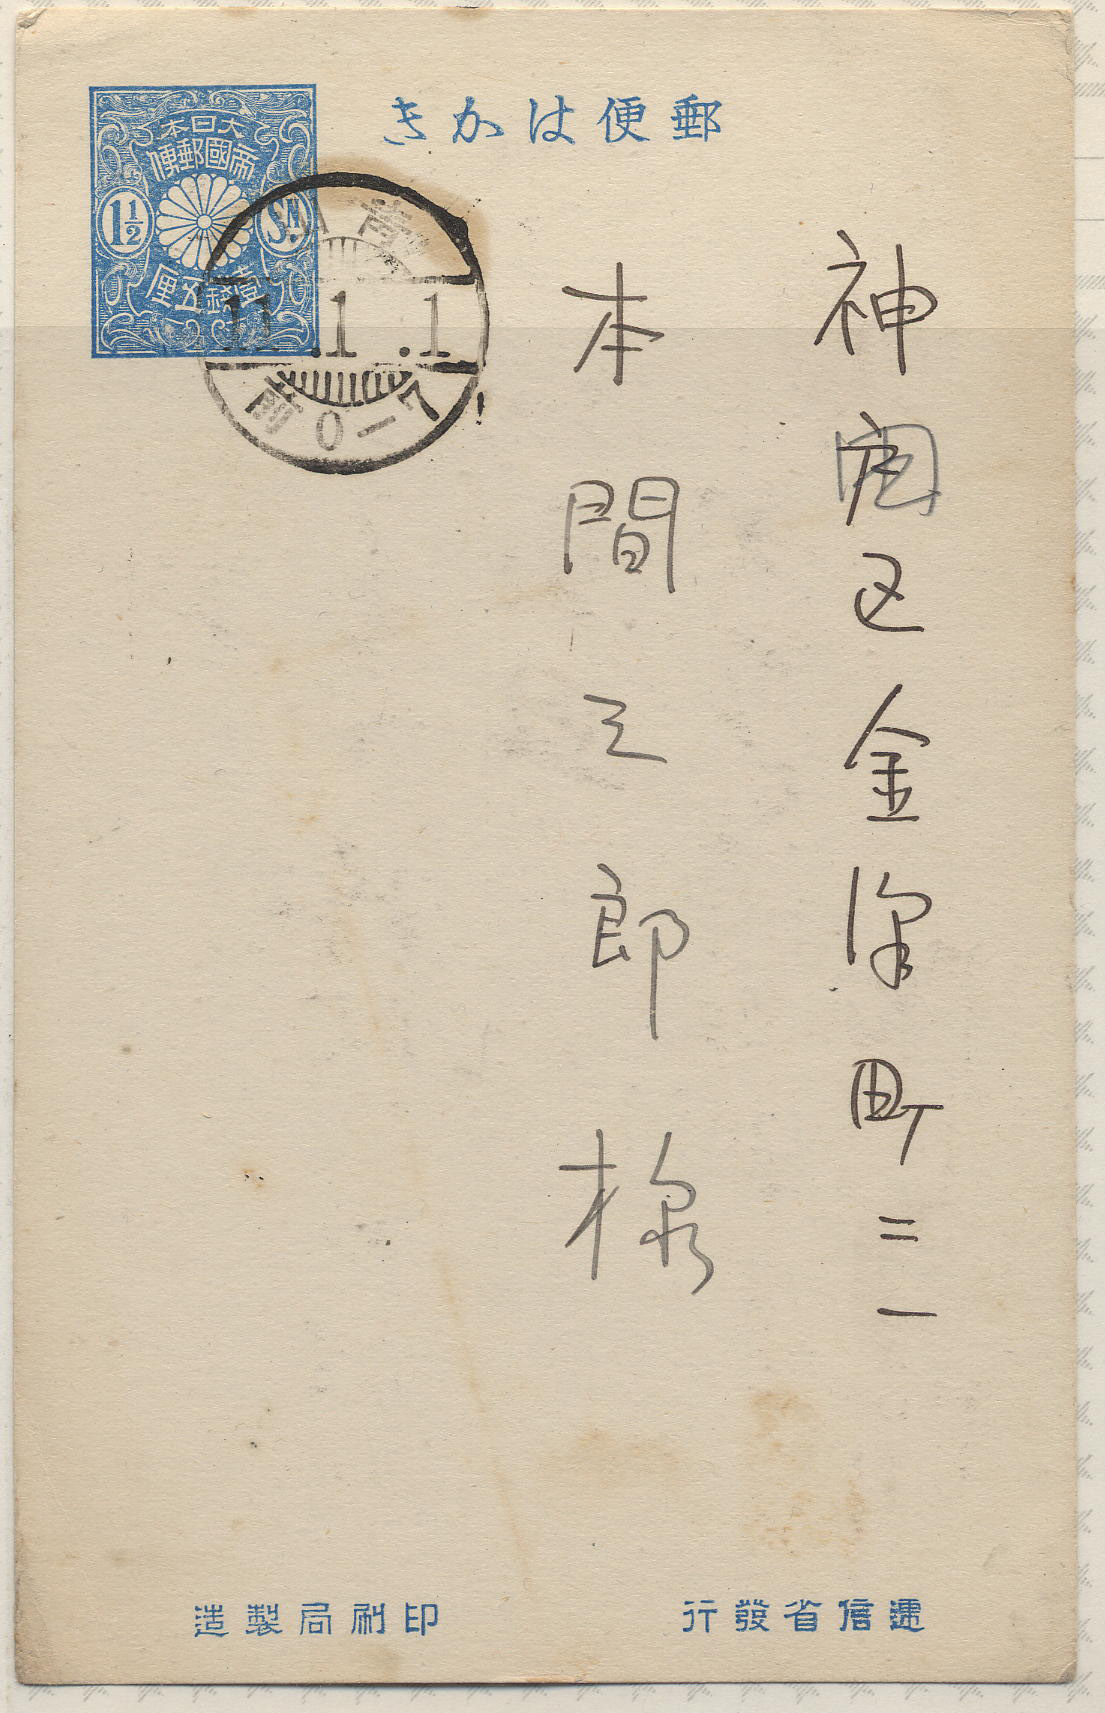 郵便はかき
大日本
帝國郵便
1½
SN.
壹錢五厘
11.1.1
前0-7
神田区金澤町二一
本間三郎様
遞信省發行
印刷局製造